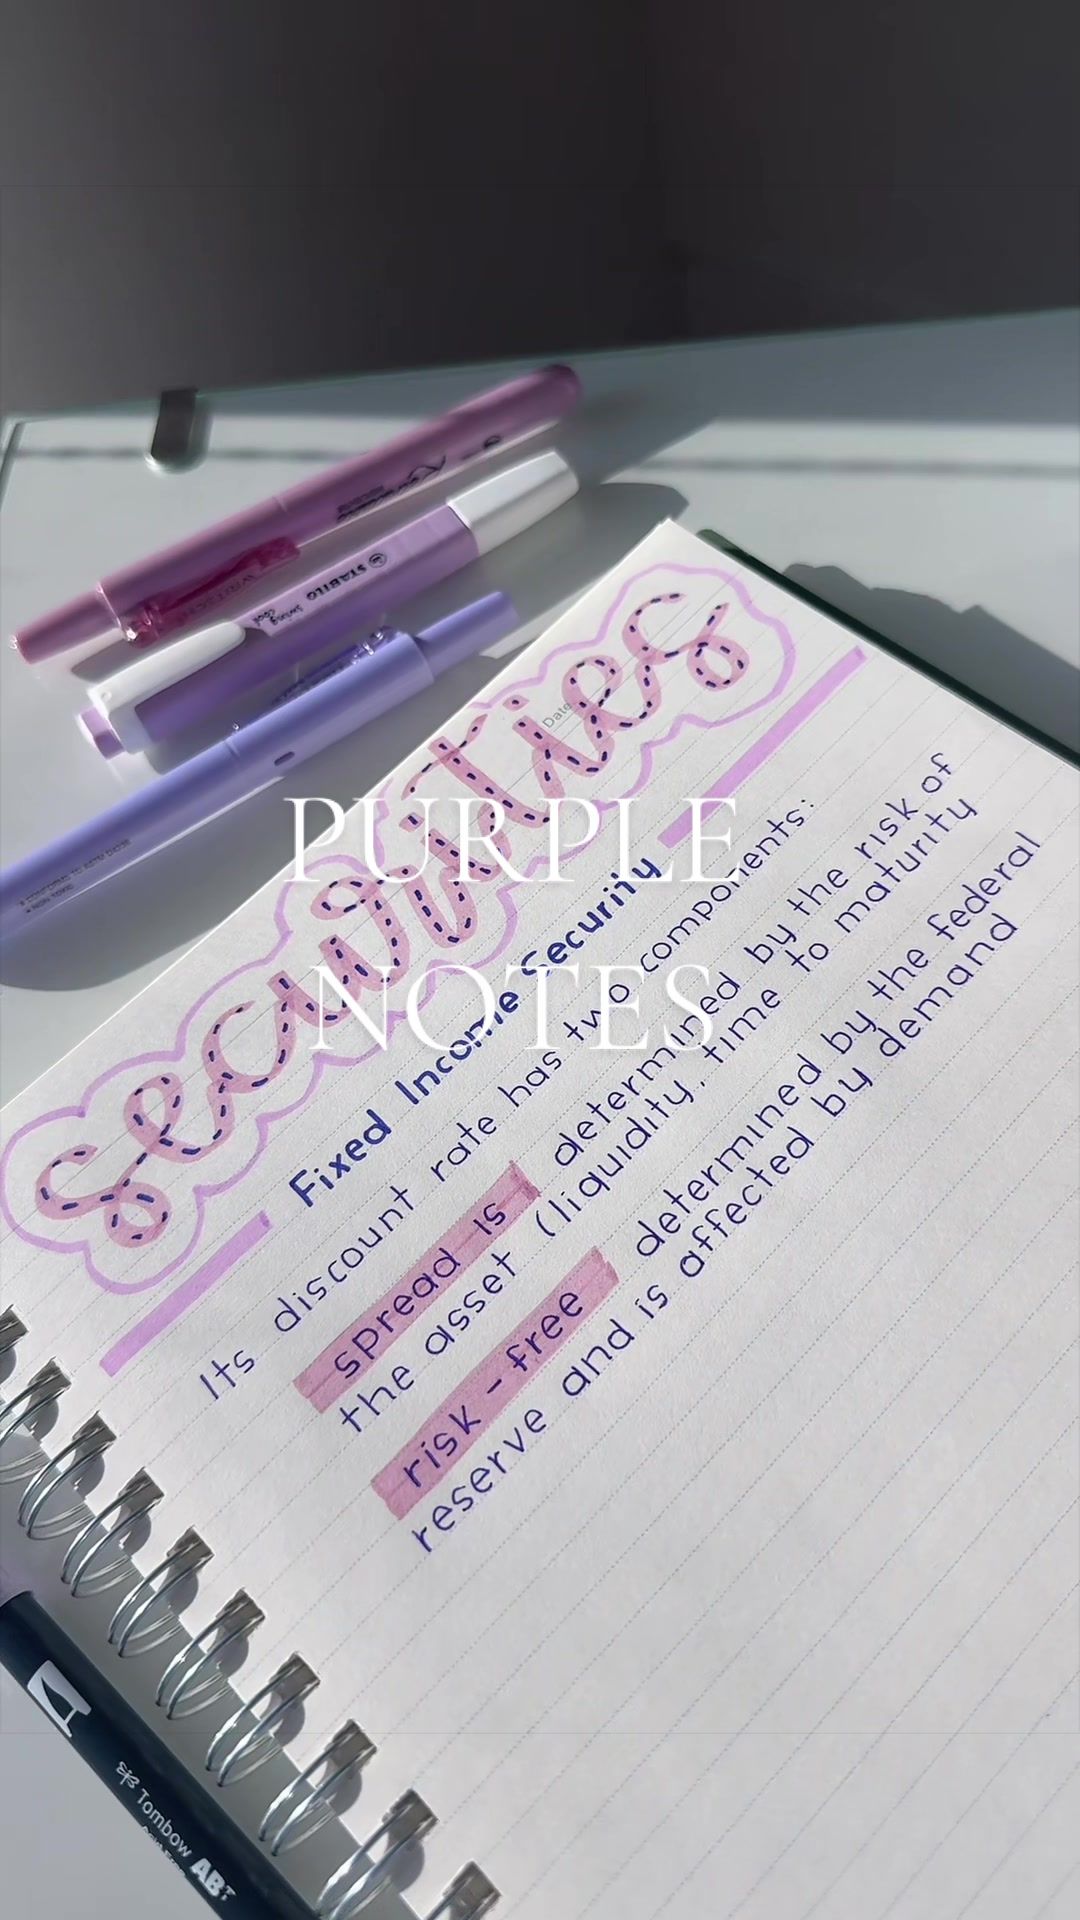 STABILO
swing
cool
CONFORMS TO ASTM D4236
NON TOXIC
Date
securities
PURPLE
NOTES
Fixed Income Security
Its discount rate has two components:
spread is determined by the risk of
the asset (liquidity, time to maturity
risk - free determined by the federal
reserve and is affected by demand
Tombow
ABT